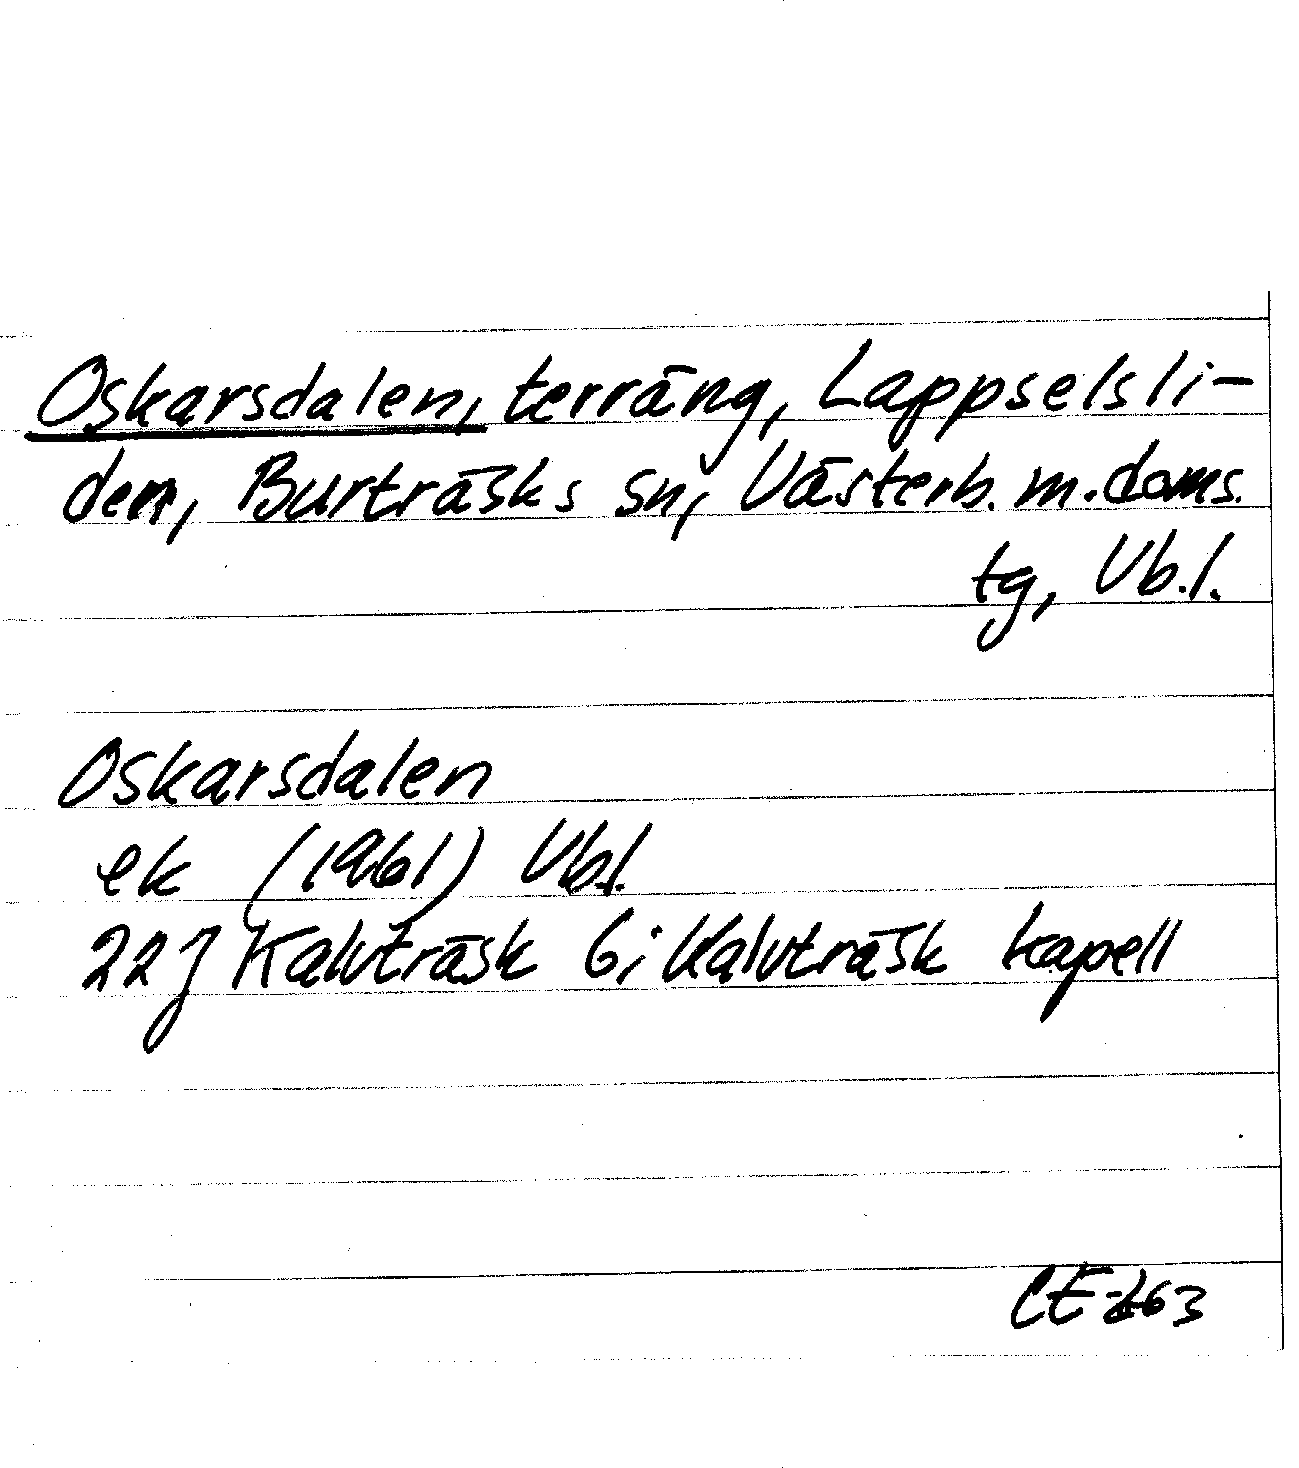 Oskarsdalen, terräng, Lappselsli-
den, Burträsks sn, Västerb. m. doms.
tg, Vb.l.
Oskarsdalen
ek (1961) Vb.l.
22J Kalvträsk 6i Kalvträsk kapell